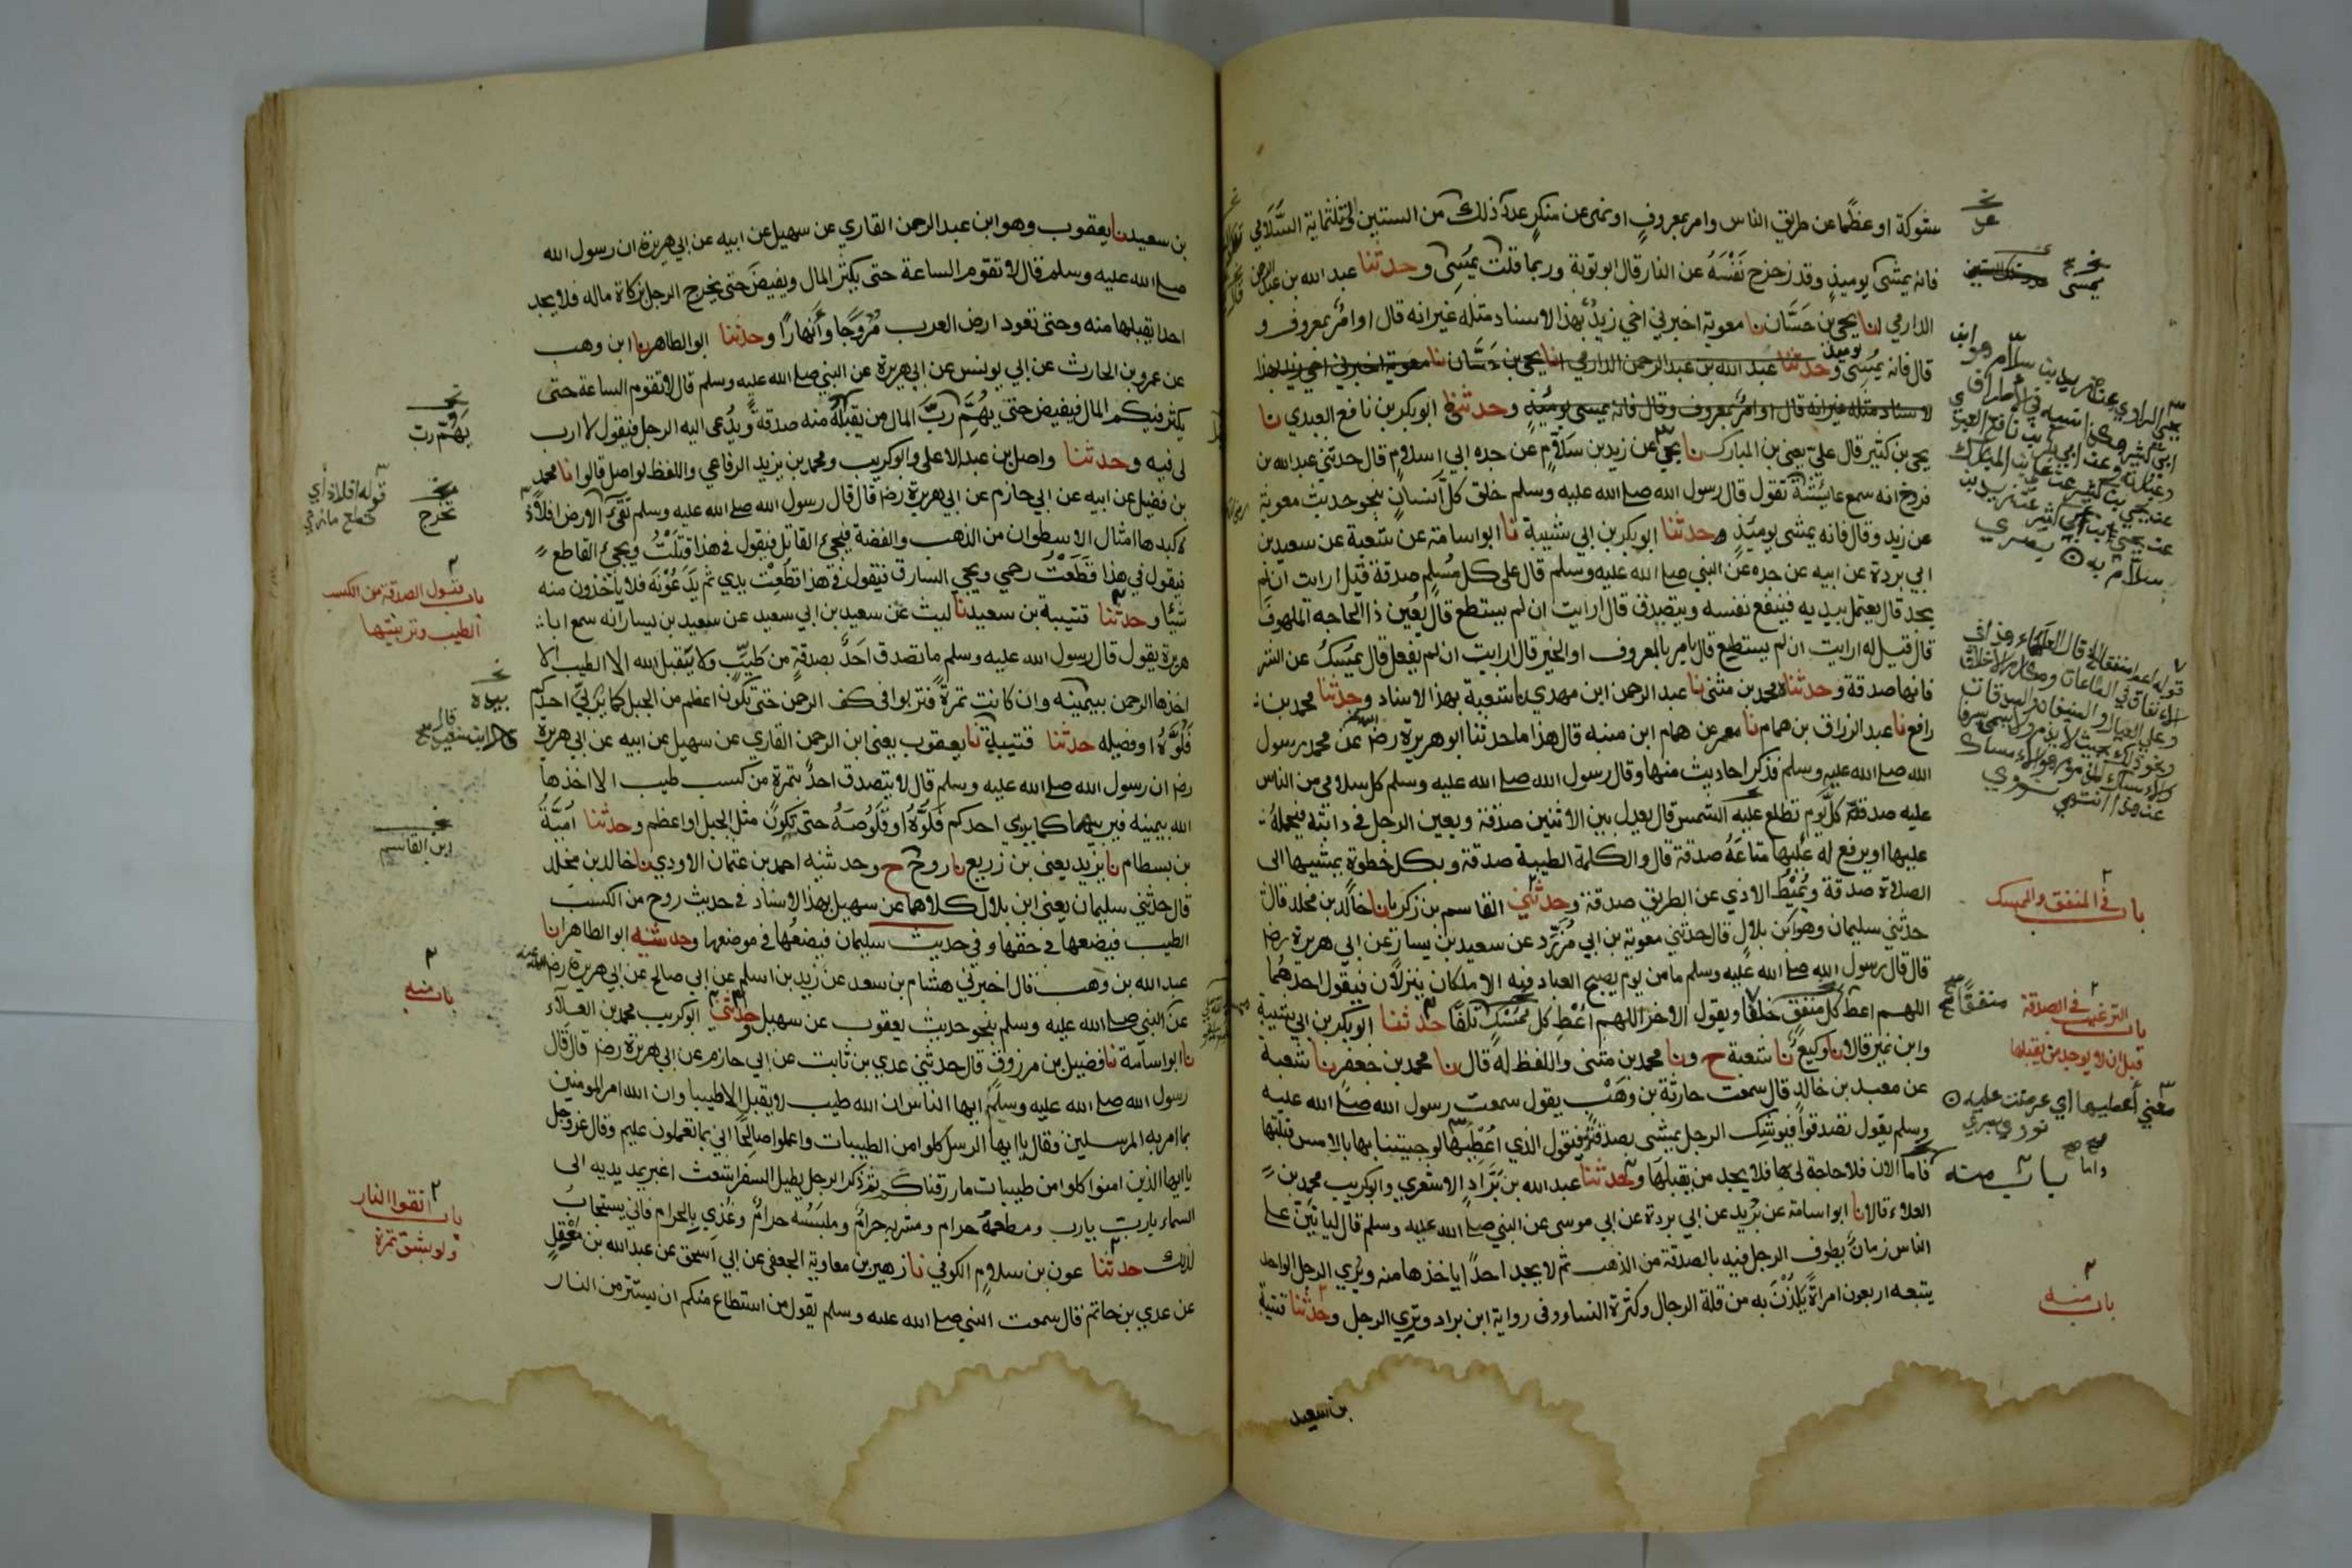 شوكة او عظمًا عن طريق الناس وامر بمعروفٍ او نهى عن منكرٍ عدد ذلك من الستين والثلثماية السُّلامي
فانه يمشى يوميذٍ وقد زحزح نَفْسَهُ عن النار قال ابو توبة وربما قلت يُمْسِى وحدثنا عبد الله بن عبد الرحمن
الدارمي انا يحيى بن حَسَّان نا معوية اخبرني اخي زيدٌ بهذا الاسناد مثله غير انه قال او امر بمعروف و
قال فانه يُمْسِى يوميذ وحدثنا عبد الله بن عبد الرحمن الدارمي انا يحيى بن حسَّان نا معوية اخبرني اخي زيد بهذا
الاسناد مثله غير انه قال او امر بمعروف وقال فانه يمسى يوميذٍ وحدثني ابو بكر بن نافع العبدي نا
يحيى بن كثير قال علىّ يعنى بن المبارك نا يحيى عن زيد بن سلامٍ عن جده ابي سلام قال حدثني عبد الله بن
فروخ انه سمع عائشة تقول قال رسول الله صلى الله عليه وسلم خلق كل انسانٍ بنحو حديث معوية
عن زيد وقال فانه يمشى يوميذٍ وحدثنا ابو بكر بن ابي شيبة نا ابو اسامة عن شعبة عن سعيد بن
ابي بردة عن ابيه عن جده عن النبي صلى الله عليه وسلم قال على كل مُسلمٍ صدقة قيل ارايت ان لم
يجد قال يعتمل بيديه فينفع نفسه ويتصدق قال ارايت ان لم يستطع قال يُعين ذا الحاجه الملهوفَ
قال قيل له ارايت ان لم يستطيع قال يامر بالمعروف او الخير قال ارايت ان لم يفعل قال يمسكُ عن الشر
فانها صدقة وحدثناه محمد بن مثنى نا عبد الرحمن ابن مهدي نا شعبة بهذا الاسناد وحدثنا محمد بن
رافع نا عبد الرزاق بن همام نا معمر عن همام ابن منبه قال هذا ما حدثنا ابو هريرة رضى الله عنه عن محمد رسول
الله صلى الله عليه وسلم فذكر احاديث منها وقال رسول الله صلى الله عليه وسلم كل سلامي من الناس
عليه صدقة كل يوم تطلع عليه الشمس قال يعدل بين الاثنين صدقة ويعين الرجل في دابته فيحمله
عليها او يرفع له عليها متاعَهُ صدقة قال والكلمة الطيبة صدقة وبكل خطوةٍ يمشيها الى
الصلاة صدقة ويُميْطُ الاذي عن الطريق صدقة وحدثني القاسم بن زكريا نا خالد بن مخلد قال
حدثني سليمان وهو ابن بلال قال حدثني معوية بن ابي مُزَرِّد عن سعيد بن يسار عن ابي هريرة رضى
قال قال رسول الله صلى الله عليه وسلم ما من يوم يصبح العباد فيه الا ملكان ينزلان فيقول احدهُما
اللهم اعط كل منفق خلفًا ويقول الاخر اللهم اعْطِ كل مُمْسكٍ تَلَفًا حدثنا ابو بكر بن ابي شيبة
وابن نمير قالا نا وكيعٌ نا شعبة ح ونا محمد بن مثنى واللفظ له قال نا محمد بن جعفر نا شعبة
عن معبد بن خالدٍ قال سمعت حارثة بن وهْب يقول سمعت رسول الله صلى الله عليه
وسلم يقول تصدقوا فيوشك الرجل يمشى بصدقته فيقول الذي اُعطيَها لو جيتنا بها بالامس قبلتها
فاما الان فلا حاجة لى بها فلا يجد من يقبلها وحدثنا عبد الله بن بَرَّادٍ الاشعري وابو كريب محمد بن
العلاء قالا نا ابو اسامة عن بُرَيد عن ابي بردة عن ابي موسى عن النبي صلى الله عليه وسلم قال لياتين على
الناس زمانٌ يطوف الرجل فيه بالصدقة من الذهب ثم لا يجد احدًا ياخذها منه ويُرى الرجل الواحد
يتبعه اربعون امراةً يَلُذْنَ به من قلة الرجال وكثرة النسا وفى رواية ابن براد وترى الرجل وحدثنا قتيبة
بن سعيد
يمسى
باب في المنفق والممسك
منفقًا
باب الترغيب في الصدقة
قبل ان لا يوجد من يقبلها
معنى أعطيها اي عرضت عليه
نووي
واما
باب منه
باب منه
بن سعيد نا يعقوب وهو ابن عبد الرحمن القاري عن سهيل عن ابيه عن ابي هريرة ان رسول الله
صلى الله عليه وسلم قال لا تقوم الساعة حتى يكثر المال ويفيضَ حتى يخرج الرجل بزكاة ماله فلا يجد
احدا يقبلها منه وحتى تعود ارض العرب مُرُوجًا وأنهارًا وحدثنا ابو الطاهر نا ابن وهب
عن عمرو بن الحارث عن ابي يونس عن ابي هريرة عن النبي صلى الله عليه وسلم قال لا تقوم الساعة حتى
يكثر فيكم المال فيفيض حتى يُهِمَّ ربَّ المال من يقبلهُ منه صدقةً ويُدعى اليه الرجل فيقول لا ارب
لى فيه وحدثنا واصل بن عبد الاعلى وابو كريب ومحمد بن يزيد الرفاعي واللفظ لواصل قالوا نا محمد
بن فضيل عن ابيه عن ابي حازم عن ابي هريرة رضى قال قال رسول الله صلى الله عليه وسلم تَقِئ الارض افلاذ
كبدها امثال الاسطوان من الذهب والفضة فيجئ القاتل فيقول في هذا قتَلْتُ ويجئ القاطع
فيقول في هذا قَطَعْتُ رحمي ويجي السارق فيقول في هذا قُطِعَتْ يدي ثم يَدَعُوْنَه فلا ياخذون منه
شيئا وحدثنا قتيبة بن سعيد نا ليث عن سعيد بن ابي سعيد عن سعيد بن يسار انه سمع ابا
هريرة يقول قال رسول الله عليه وسلم ما تصدق احدٌ بصدقةٍ من طيِّبٍ ولا يتقبل الله الا الطيب الا
اخذها الرحمن بيمينه وان كانت تمرةً فتربوا فى كف الرحمن حتى تكون اعظم من الجبل كما يُرَبّى احدكم
فَلُوَّهُ او فصيله حدثنا قتيبة نا يعقوب يعنى ابن الرحمن القاري عن سهيل عن ابيه عن ابي هريرة
رضى ان رسول الله صلى الله عليه وسلم قال لا يتصدق احدٌ بتمرةٍ من كسب طيب الا اخذها
الله بيمينه فيربيها كما يربي احدكم فَلُوَّهُ او قَلُوصَهُ حتى تكون مثل الجبل او اعظم وحدثنا اُمَيَّةُ
بن بسطام نا يزيد يعنى بن زريع نا روحٌ ح وحدثنيه احمد بن عثمان الاودي نا خالد بن مخلد
قال حدثني سليمان يعنى ابن بلال كلاهما عن سهيل بهذا الاسناد في حديث روح من الكسب
الطيب فيضعها في حقها وفي حديث سليمان فيضعُها في موضعها وحدثنيه ابو الطاهر انا
عبد الله بن وهب قال اخبرني هشام بن سعد عن زيد بن اسلم عن ابي صالح عن ابي هريرة رضى الله عنه
عن النبي صلى الله عليه وسلم بنحو حديث يعقوب عن سهيل وحدثني ابو كريب محمد بن العلاء
نا ابو اسامة نا فضيل بن مرزوق قال حدثني عدي بن ثابت عن ابي حازم عن ابي هريرة رضى قال قال
رسول الله صلى الله عليه وسلم ايها الناس ان الله طيب لا يقبل الا طيبا وان الله امر المومنين
بما امر به المرسلين فقال يا ايها الرسل كلوا من الطيبات واعملوا صالحًا اني بما تعملون عليم وقال عز وجل
يا ايها الذين امنوا كلوا من طيبات ما رزقناكم ثم ذكر الرجل يطيل السفر اشعث اغبر يمد يديه الى
السماء يا ربّ يا رب ومطعمهُ حرام ومشربه حرامٌ وملبَسُه حرامٌ وغُذِي بالحرام فاني يستجاب
لذلك حدثنا عون بن سلامٍ الكوفي نا زهير بن معاوية الجعفى عن ابي اسحق عن عبد الله بن مَعْقِلٍ
عن عدي بن حاتم قال سمعت النبي صلى الله عليه وسلم يقول من استطاع منكم ان يستتر من النار
يَهُمّ رب
تخرج
قوله افلاذ أي
قطع
باب قبول الصدقة من الكسب
الطيب وتربيتها
بيده
ابن القاسم
باب منه
باب اتقوا النار
ولو بشق تمرة